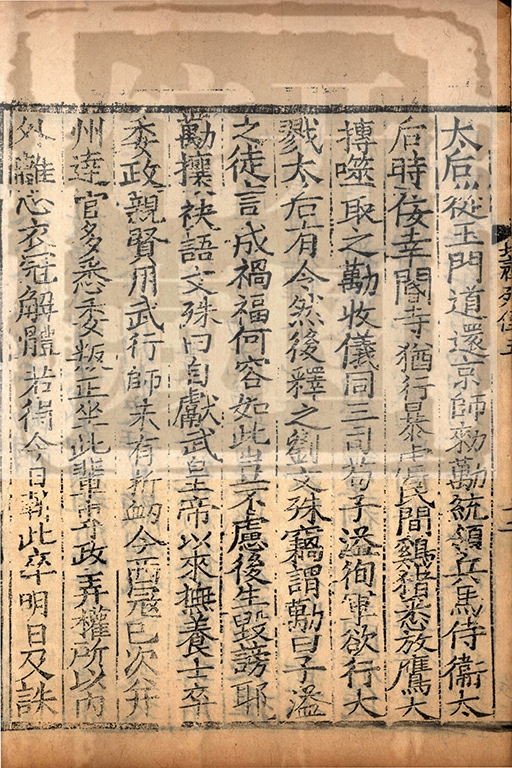 太后從土門道還京師勑勱統領兵馬侍衛太
后時佞幸閹寺猶行暴虐民間雞猪悉放鷹犬
摶噬取之勱收儀同三司苟子溢徇軍欲行大
戮太后有令然後釋之劉文殊竊謂勱曰子溢
之徒言成禍福何容如此豈不慮後生毀謗耶
勱攘袂語文殊曰自獻武皇帝以來撫養士卒
委政親賢用武行師未有折衄今西冦已次并
州達官多悉委叛正坐此輩專政弄權所以内
外離心衣冠解體若得今日斬此卒明日及誅